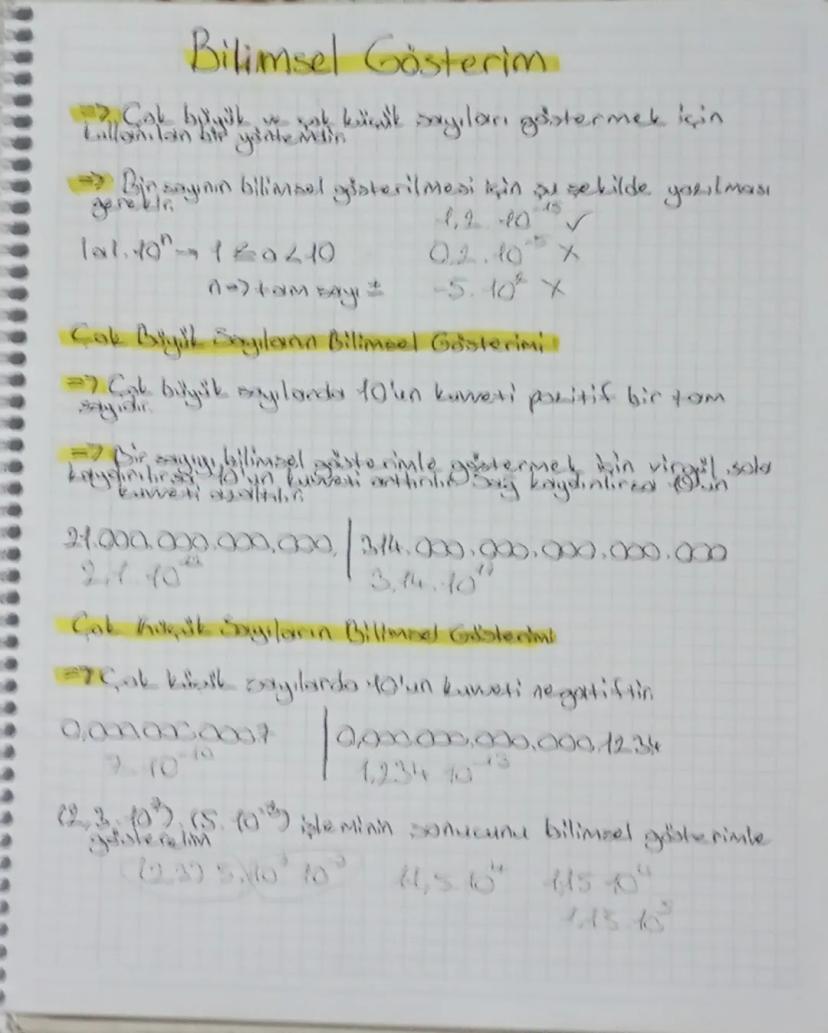 Bilimsel Gösterim
=> Çok büyük ve çok küçük sayıları göstermek için
kullanılan bir yöntemdir.
=> Bir sayının bilimsel gösterilmesi için şu şekilde yazılması
gerekir.
1,2 · 10⁻¹⁵ ✓
|a|. 10ⁿ → 1 ≤ a < 10 0,2 . 10⁻⁵ X
n => tam sayı ± -5. 10² X
Çok Büyük Sayıların Bilimsel Gösterimi
=> Çok büyük sayılarda 10'un kuvveti pozitif bir tam
sayıdır.
=> Bir sayıyı bilimsel gösterimle göstermek için virgül sola
kaydırılırsa 10'un kuvveti arttırılır. Sağ kaydırılırsa 10'un
kuvveti azaltılır.
21.000.000.000.000, | 314.000.000.000.000.000
2,1 . 10 3,14. 10
Çok Küçük Sayıların Bilimsel Gösterimi
=> Çok küçük sayılarda 10'un kuvveti negatiftir.
0,000.000.0007 | 0,000.000.000.000.1234
7 . 10⁻¹⁰ 1,234 10⁻¹³
(2,3. 10 ) . (5. 10 ) işleminin sonucunu bilimsel gösterimle
gösterelim
(2,3) 5. 10 10 11,5 10⁴ 1,15 10⁴
1,15 10